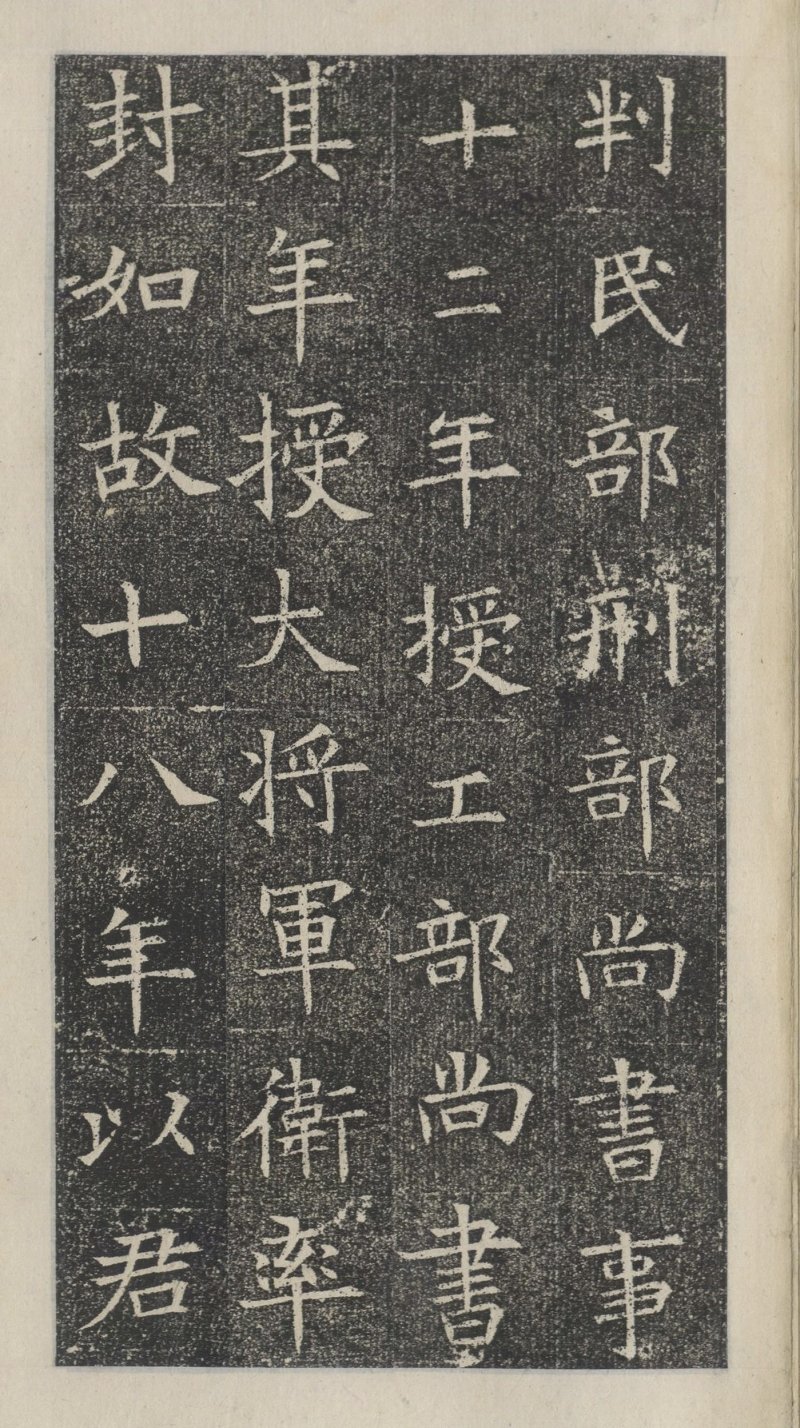 判民部刑部尚書事
十二年授工部尚書
其年授大將軍衛率
封如故十八年以君